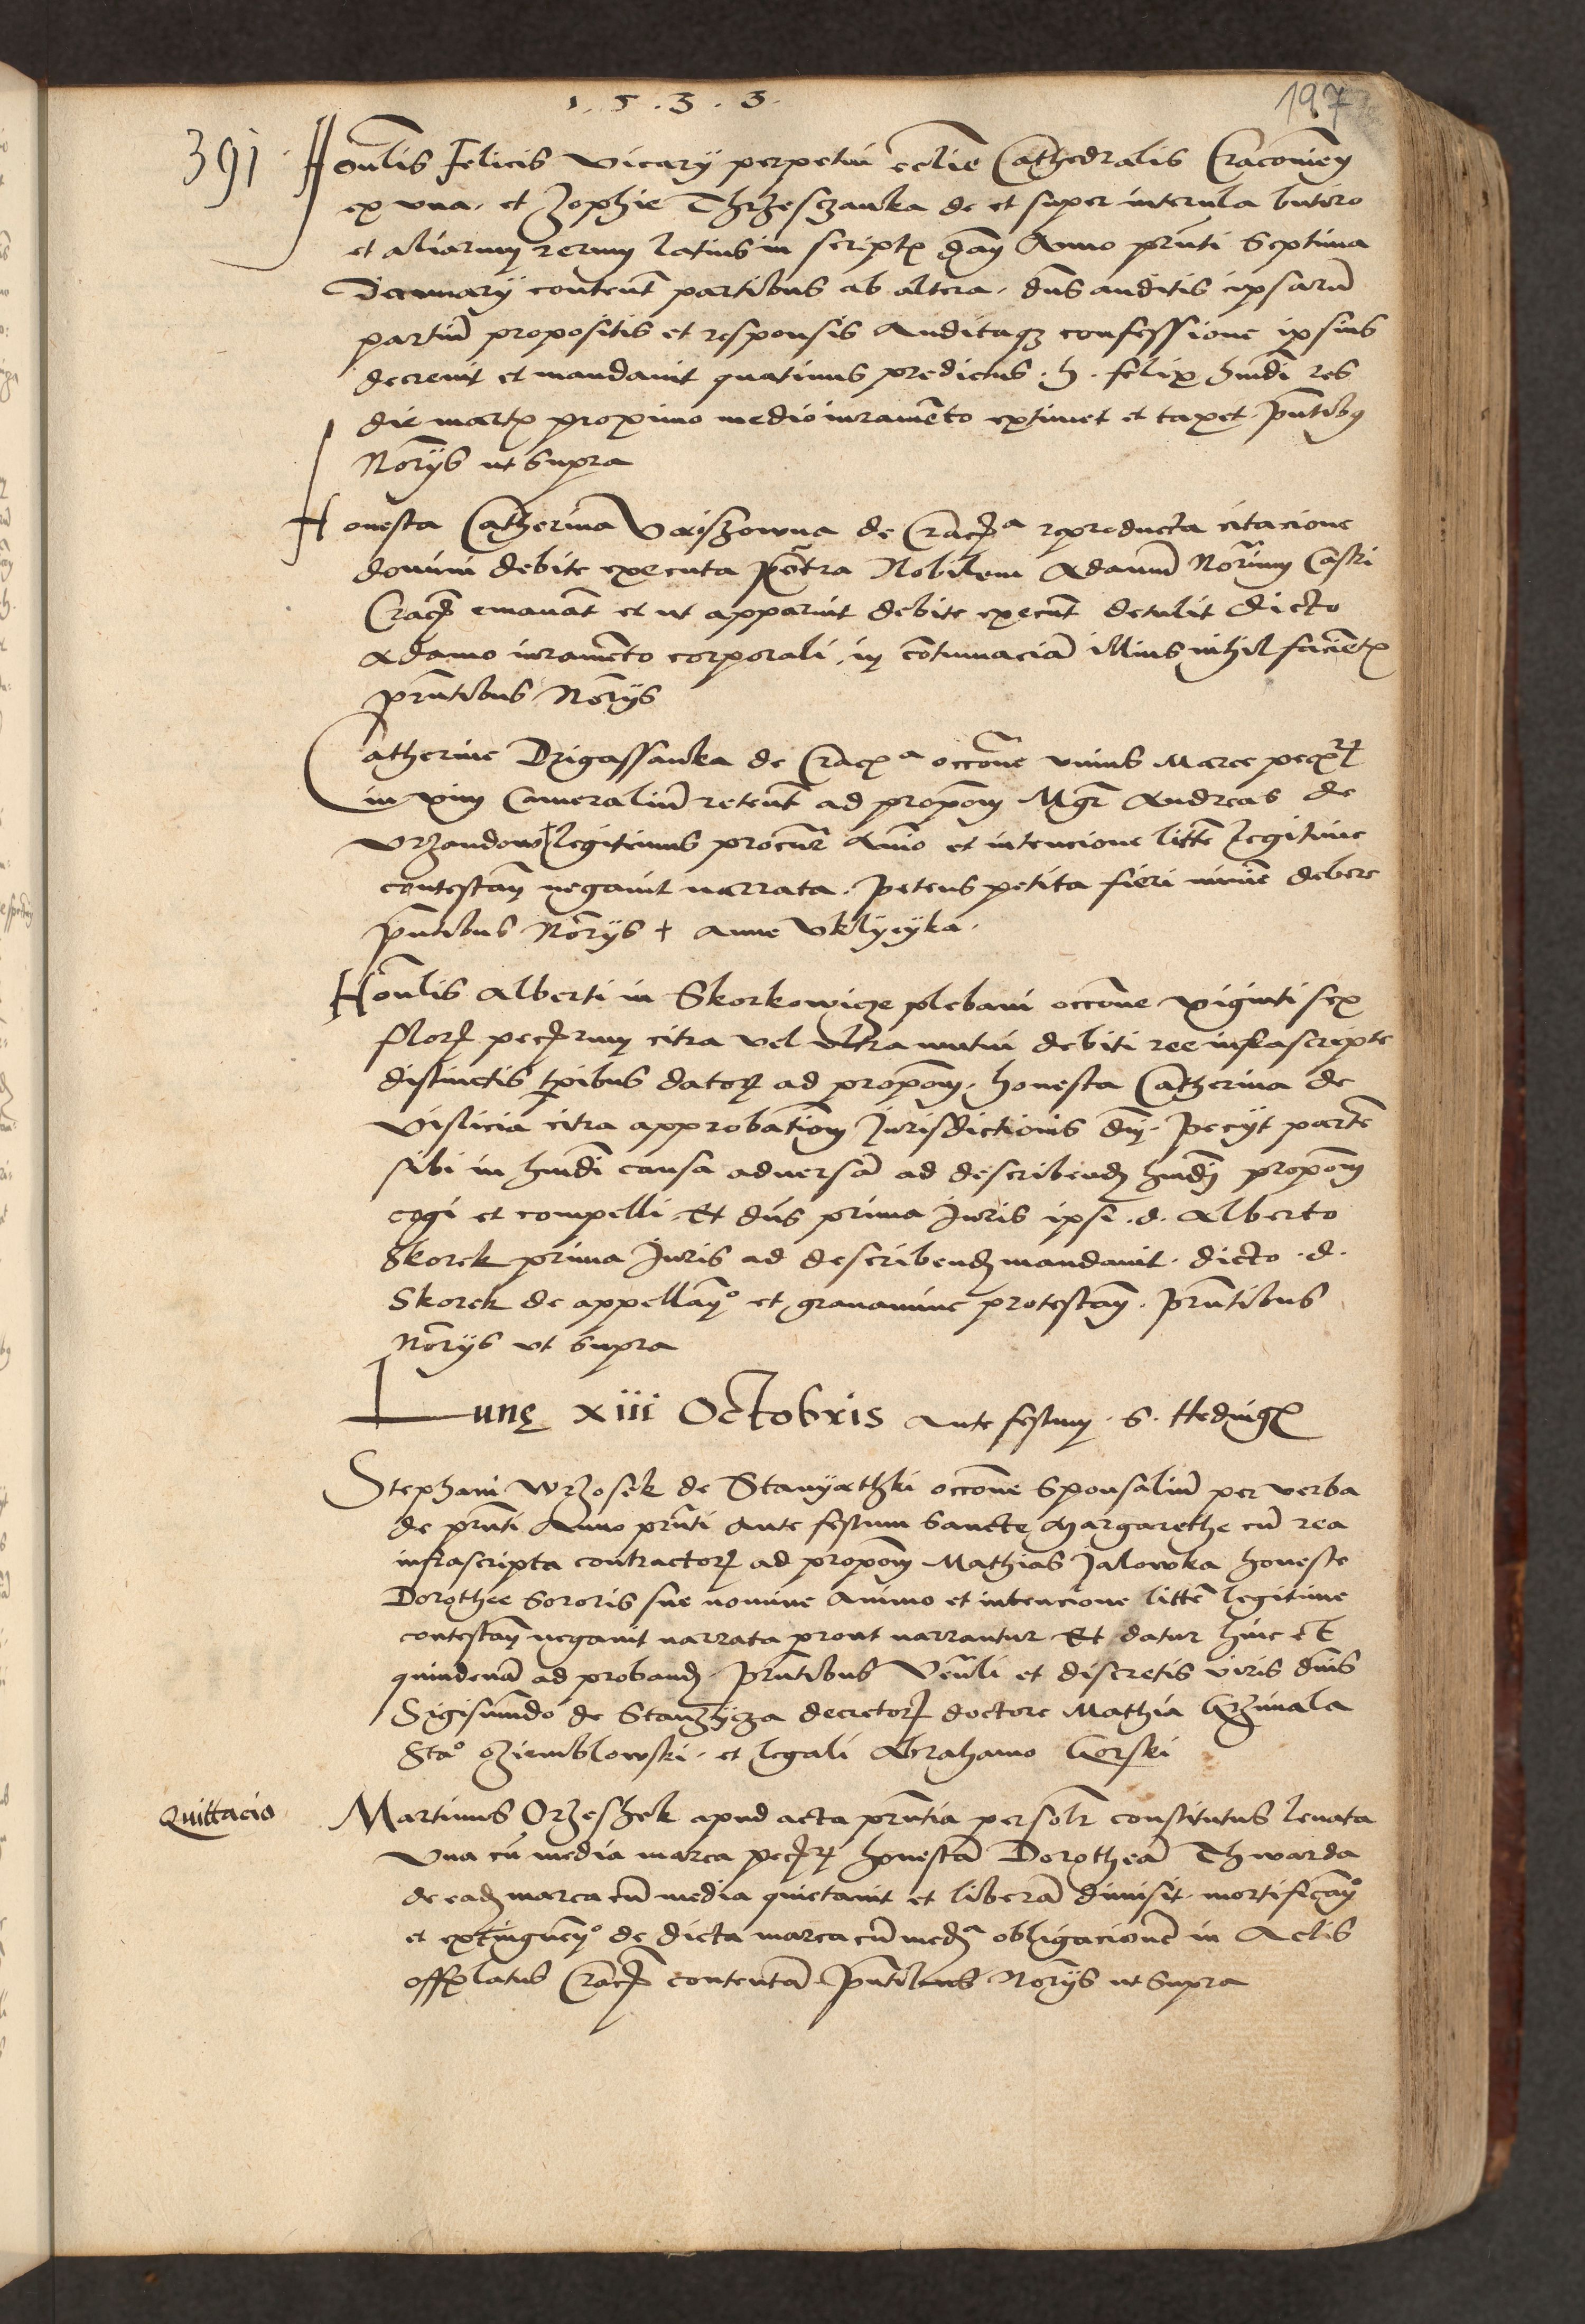 1.5.3.3.
197
391
Honlis Felicis vicarii perpetui ecclie Cathedralis Cracovien
ex una et Zophie Thrzesczanka de et super interula butiro
et aliarum rerum latius in script dan Anno prnti Septima
Januarii content partibus ab altera. dns auditis ipsarum
partium propositis et responsis Auditaqz confessione ipsius
decrevit et mandavit quatinus predictus . h . felix hmdi res
die martis proximo medio iuramento extimet et taxet. pntibus
Noriis ut supra
Honesta Catherina de Crac a reproducta citacione
domini debite executa contra Nobilem Adamum Norium Castri
Crac emanat et ut apparuit debite execut detulit dicto
Adamo iuramento corporali in contumaciam illius nihil facient
prntibus Noriis
Catherine Drigassanka de Crac a occone unius Marce
in vim Cameralium retent ad propom Mgr Andreas de
Vrzandow † legitimus procur Anio et intencione litte legitime
contestan negavit narrata. petens petita fieri minie debere
pntibus Noriis † Anne Vklyeyka.
Honlis Alberti in Skorkowicze plebani occone viginti sex
flor peccuniarum citra vel ultra mutui debiti ree infrascripte
distinctis tpibus dator ad propom. honesta Catherina de
Vislicia citra approbationem Jurisdictionis dni. peciit partem
sibi in hmdi causa adversam ad describend hmdi propom
cogi et compelli. Et dns prima Juris ipsi .d. Alberto
Skorek prima Juris ad describend mandavit. dicto .d.
Skorek de appellan o et gravamine protestan. prntibus
noriis ut supra
Lunę xiii Octobris Ante festum . S . Hedvigis
Stephani Wrzosek de Stanyathki occone Sponsalium per verba
de prnti Anno prnti Ante festum Sancte Margarethe cum rea
infrascripta contractor ad propom Mathias Jalowka honeste
Dorothee Sororis sue nomine Animo et intencione litte legitime
contestan negavit narrata prout narrantur Et datur huic
quindenam ad proband. prntibus Venli et discretis viris dnis
Sigismundo de Stanzycza decretor doctore Mathia Grzimala
Sta o Oziemblowski. et legali Abrahamo Gorski
Quittacio
Martinus Orzeszek apud acta prntia personlr constitutus levata
Una cum media marca honestam Dorotheam Thwarda
de ead marca cum media quietavit et liberam dimisit mortifican o
et extinguen o de dicta marca cum med a obligacionem in Actis
offlatus Crac contentam. pntibus Noriis ut supra